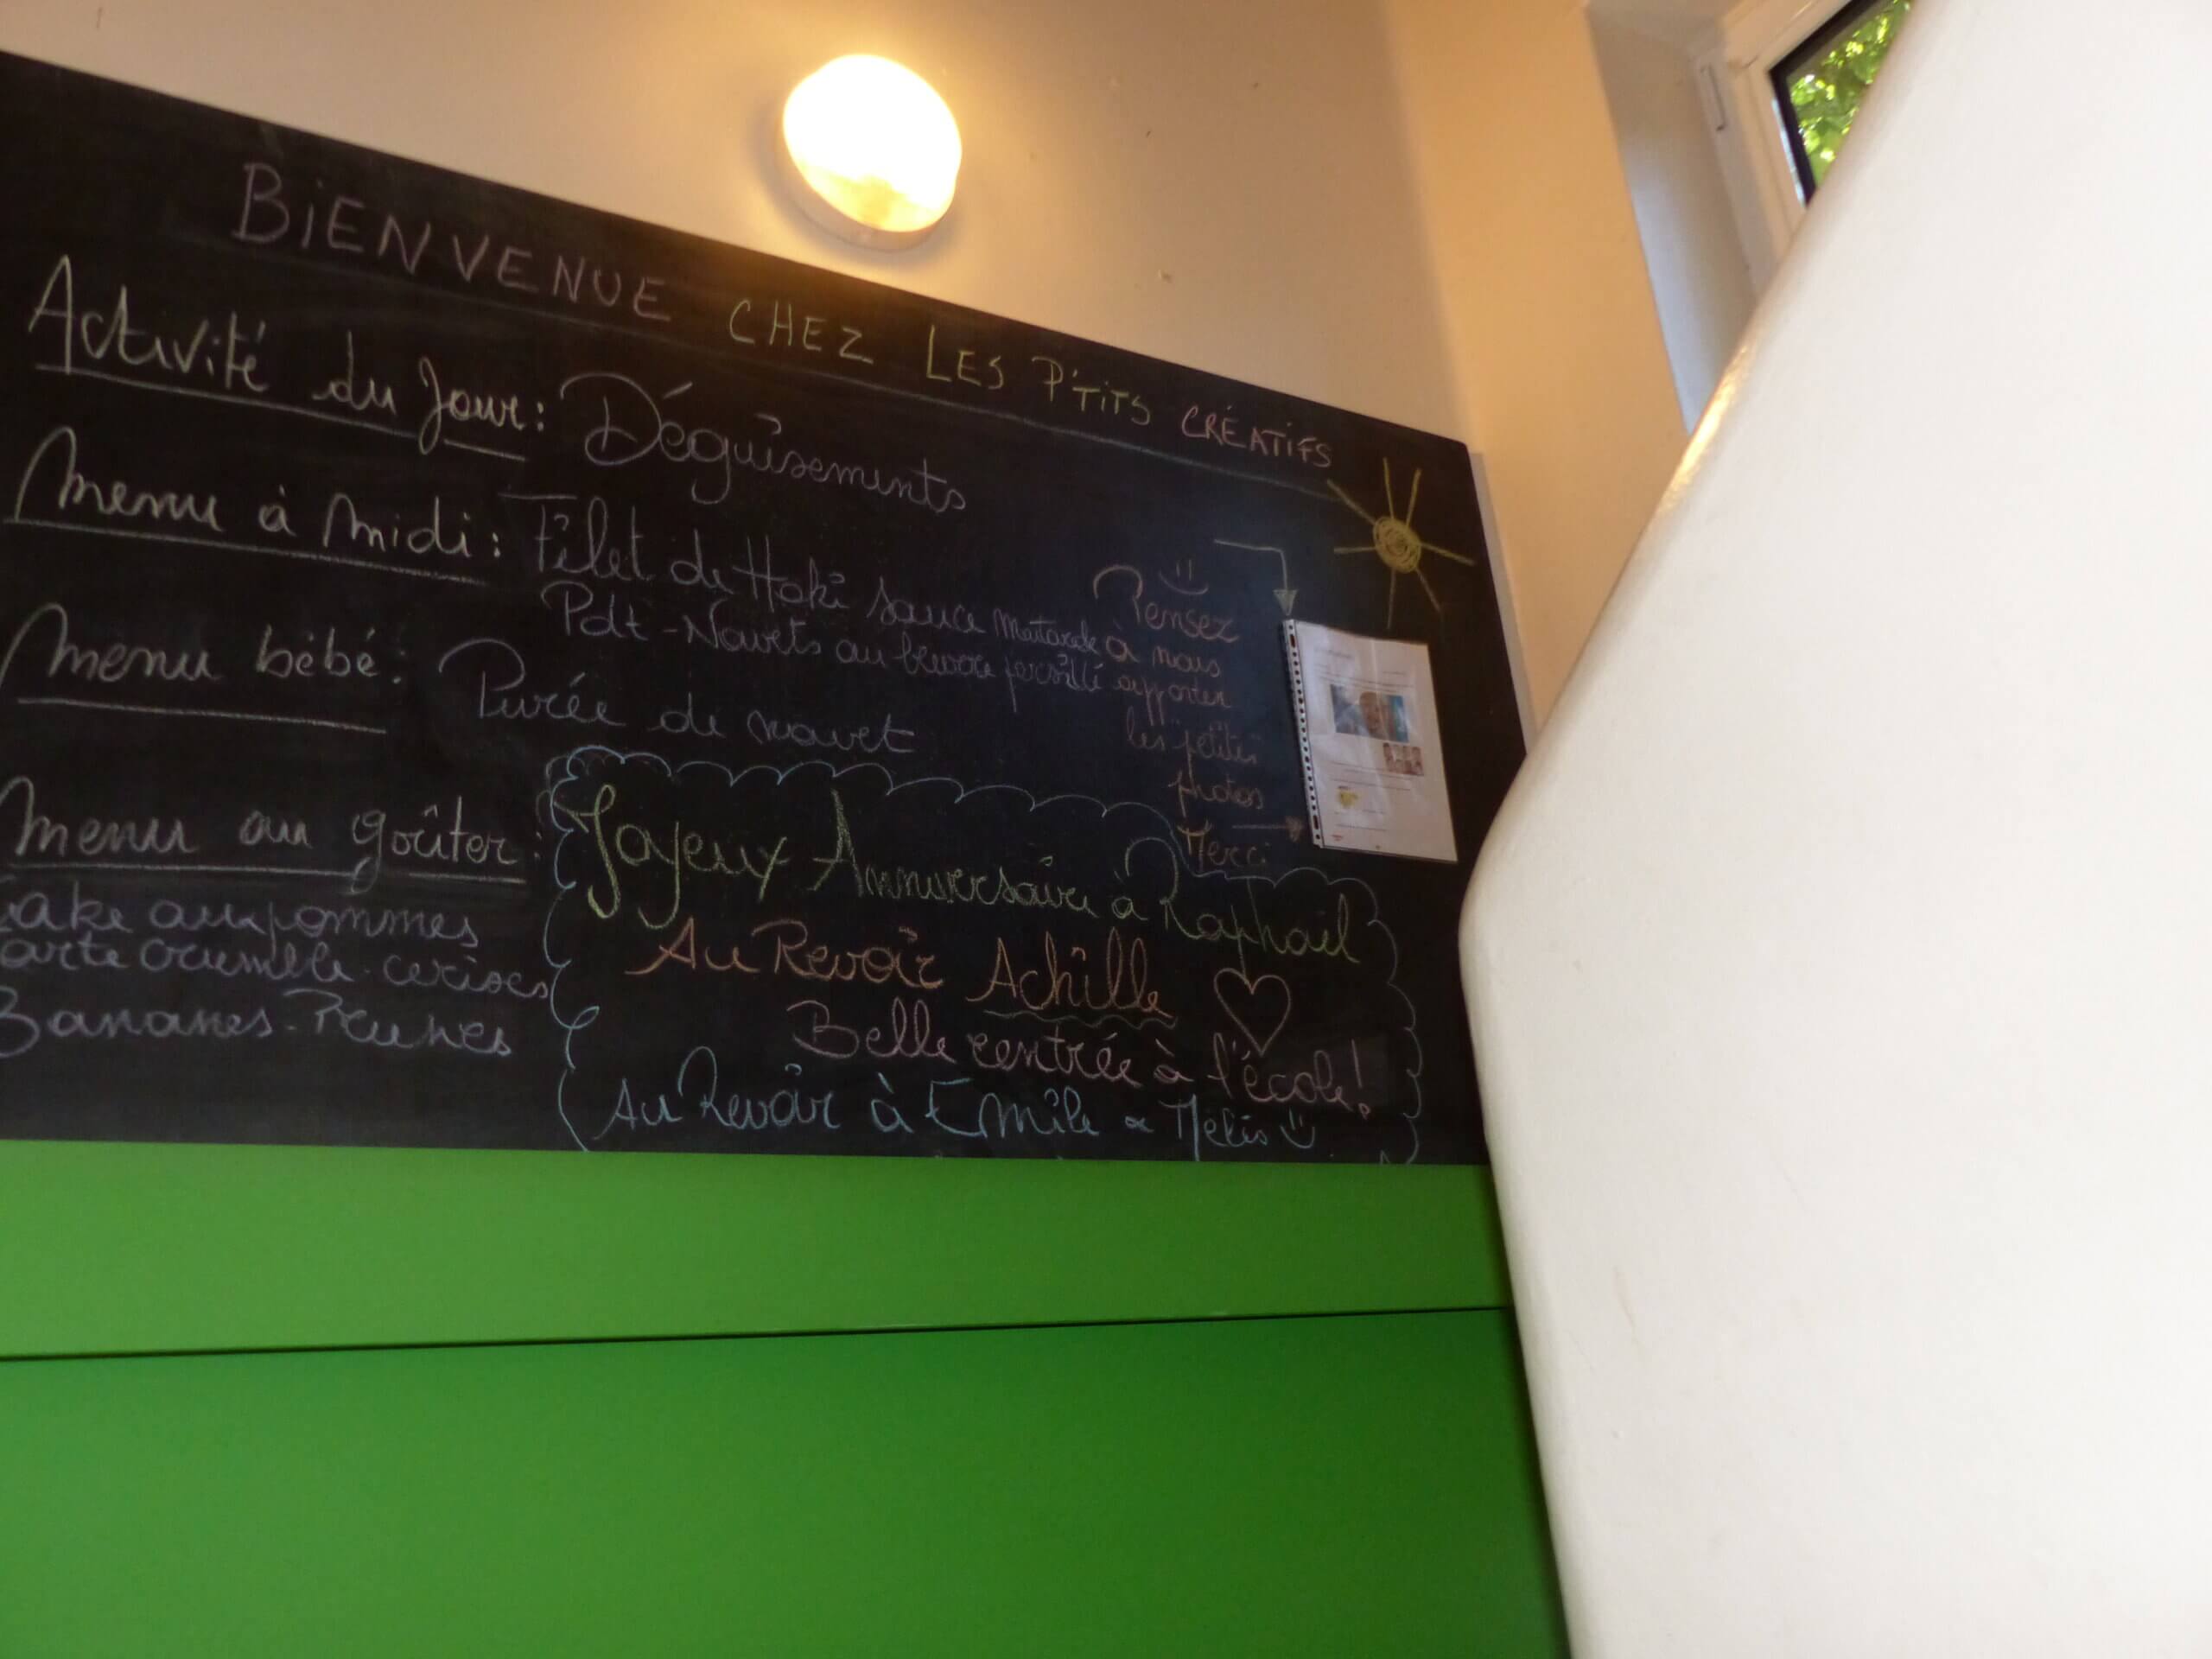 BiENVENUE CHEZ LES P'TiTS CRÉATiFS
Activité du Jour: Déguisements
Menu à Midi: Filet de Hoki sauce moutarde
Pdt - Navets au beurre persillé
Menu bébé: Purée de navet
Menu au goûter:
Cake aux pommes
arte crumble-cerises
Bananes-Prunes
Pensez
à nous
apporter
les petites
photos
Merci
Joyeux Anniversaire à Raphaël
Au Revoir Achille
Belle rentrée à l'école!
Au Revoir à Emile & Mélis